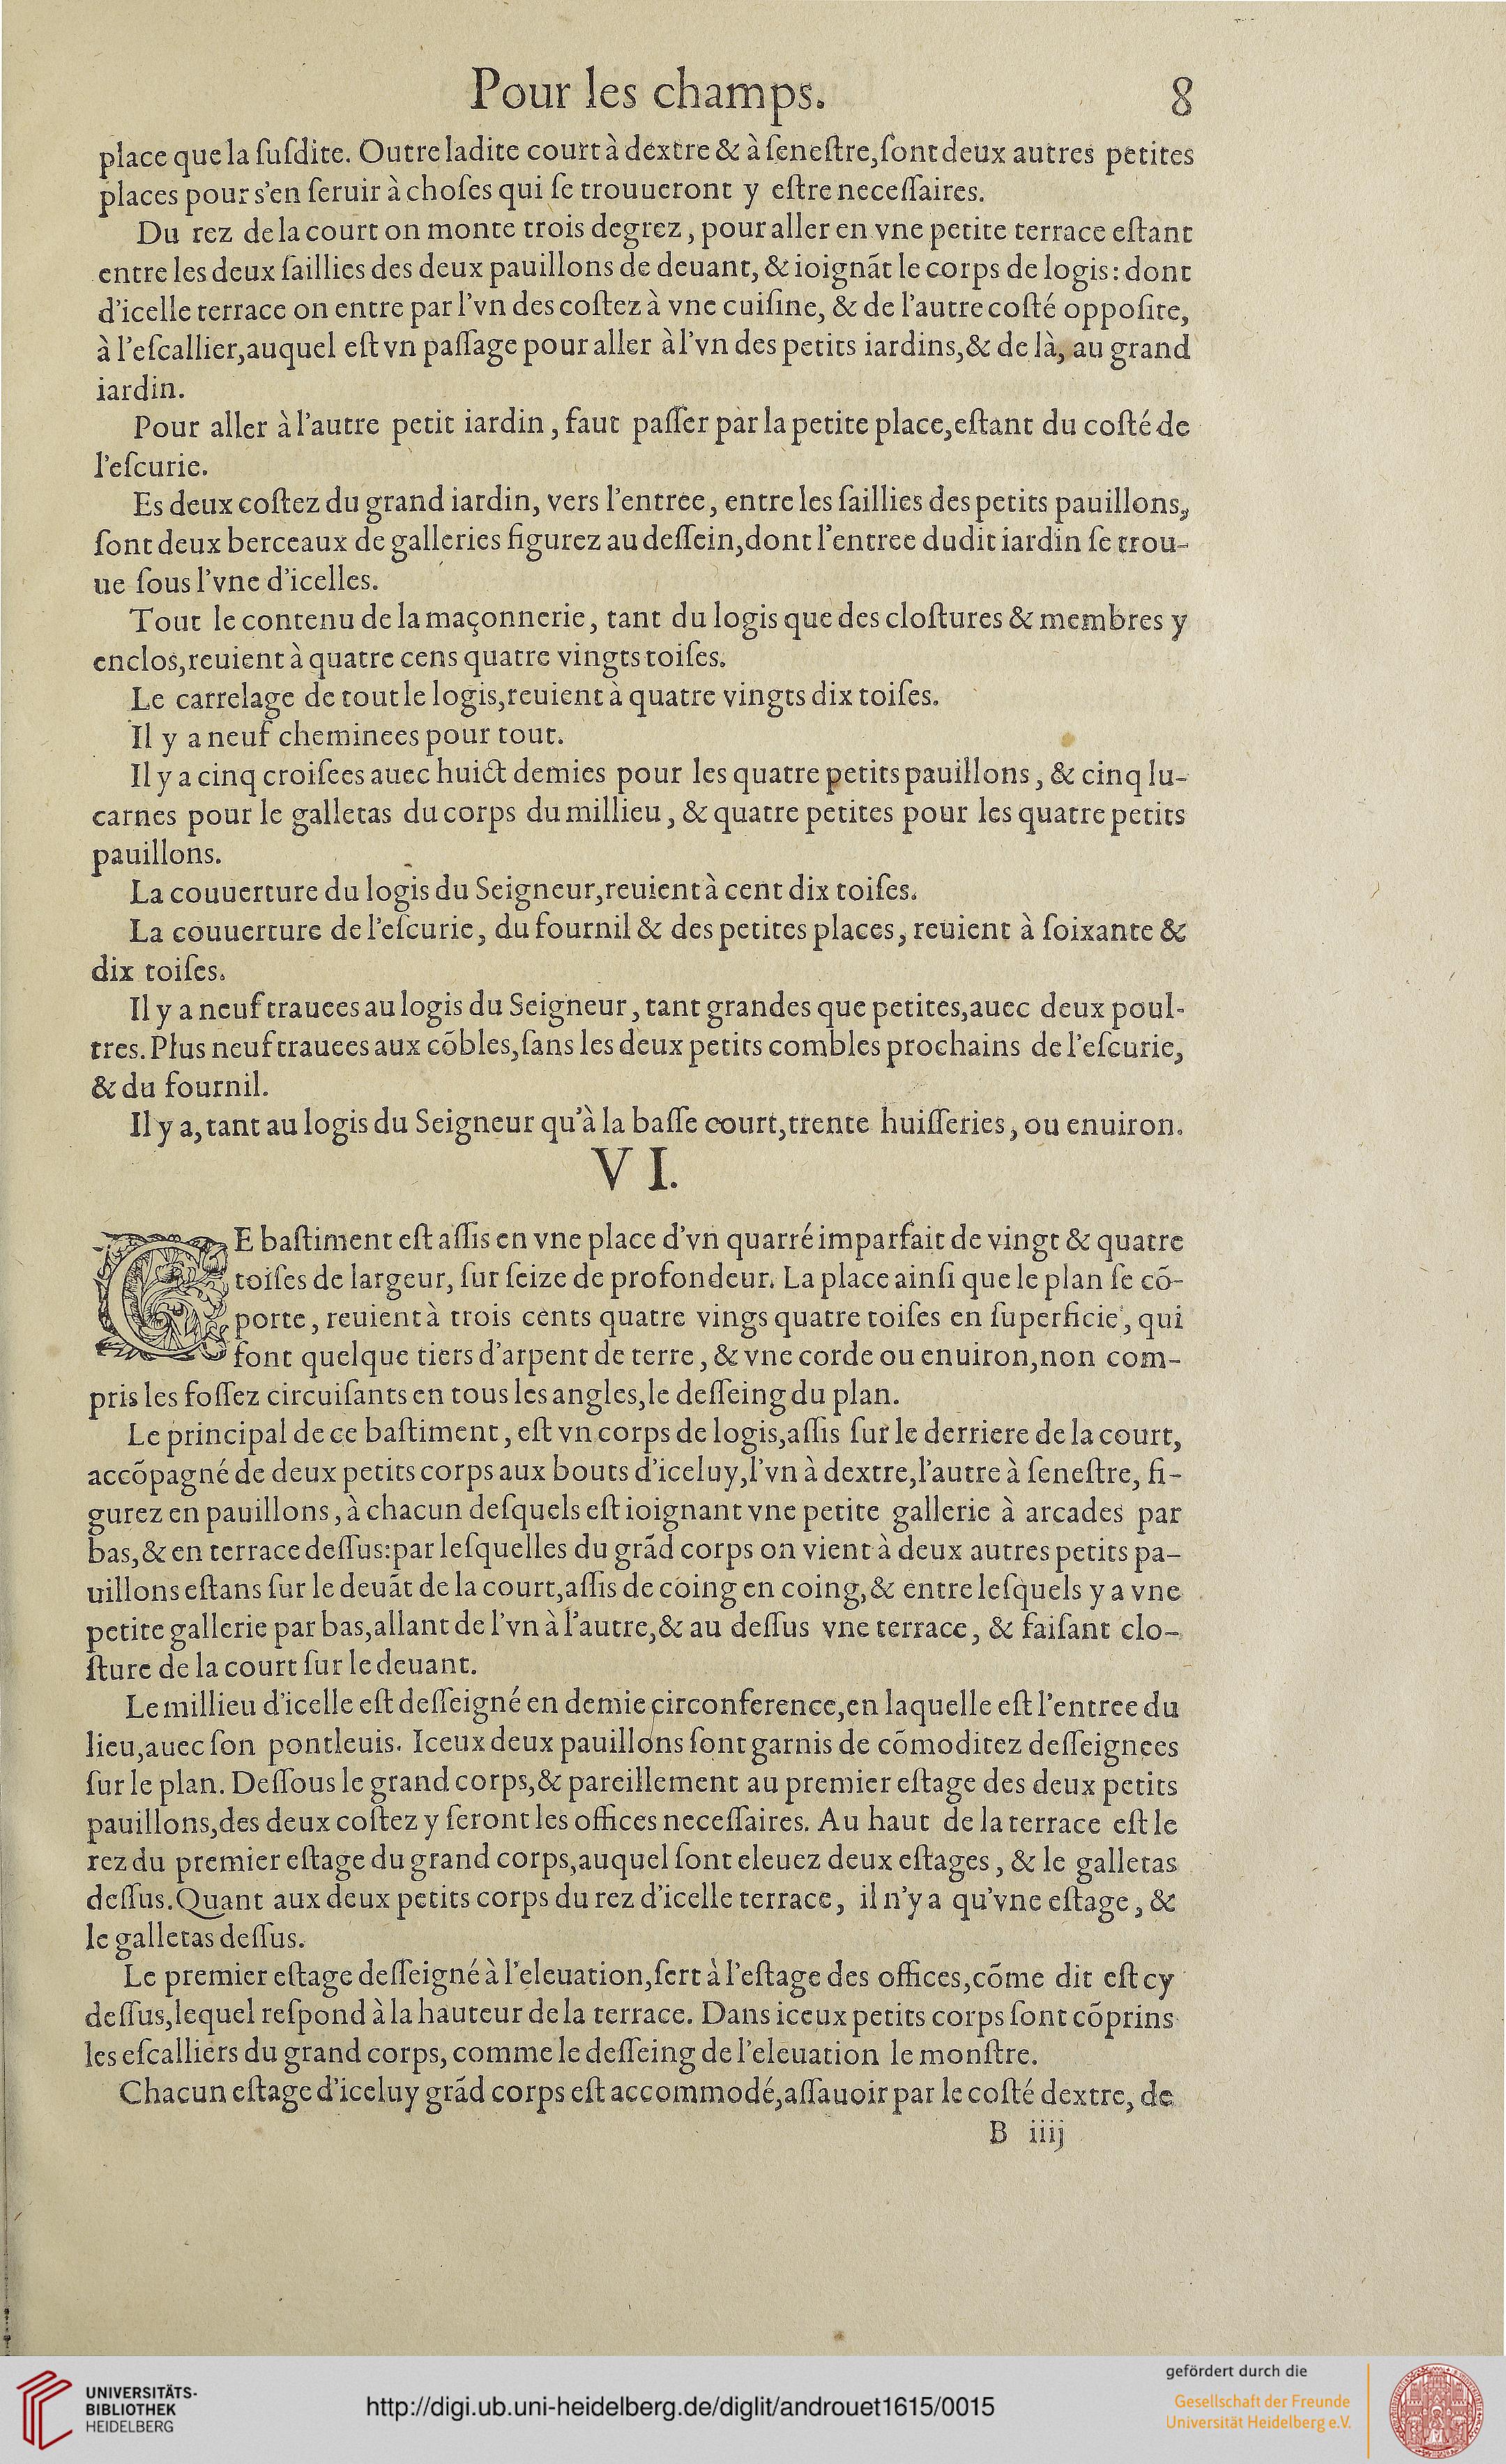 Pour les champs. 8
place que la ſuſdite. Outre ladite court à dextre & à ſeneſtre, ſont deux autres petites
places pour s'en ſeruir à choſes qui ſe trouueront y eſtre neceſſaires.
Du rez de la court on monte trois degrez, pour aller en vne petite terrace eſtant
entre les deux ſaillies des deux pauillons de deuant, & ioignāt le corps de logis: dont
d'icelle terrace on entre par l'vn des coſtez à vne cuiſine, & de l'autre coſté oppoſite,
à l'eſcallier, auquel eſt vn paſſage pour aller à l'vn des petits iardins, & de là, au grand
iardin.
Pour aller à l'autre petit iardin, faut paſſer par la petite place, eſtant du coſté de
l'eſcurie.
Es deux coſtez du grand iardin, vers l'entree, entre les ſaillies des petits pauillons,
ſont deux berceaux de galleries figurez au deſſein, dont l'entree dudit iardin ſe trou-
ue ſous l'vne d'icelles.
Tout le contenu de la maçonnerie, tant du logis que des cloſtures & membres y
enclos, reuient à quatre cens quatre vingts toiſes.
Le carrelage de tout le logis, reuient à quatre vingts dix toiſes.
Il y a neuf cheminees pour tout.
Il y a cinq croiſees auec huict demies pour les quatre petits pauillons, & cinq lu-
carnes pour le galletas du corps du millieu, & quatre petites pour les quatre petits
pauillons.
La couuerture du logis du Seigneur, reuient à cent dix toiſes.
La couuerture de l'eſcurie, du fournil & des petites places, reuient à ſoixante &
dix toiſes.
Il y a neuf trauees au logis du Seigneur, tant grandes que petites, auec deux poul-
tres. Plus neuf trauees aux cōbles, ſans les deux petits combles prochains de l'eſcurie,
& du fournil.
Il y a, tant au logis du Seigneur qu'à la baſſe court, trente huiſſeries, ou enuiron.
VI.
CE baſtiment eſt aſſis en vne place d'vn quarré imparfait de vingt & quatre
toiſes de largeur, ſur ſeize de profondeur. La place ainſi que le plan ſe cō-
porte, reuient à trois cents quatre vings quatre toiſes en ſuperficie, qui
font quelque tiers d'arpent de terre, & vne corde ou enuiron, non com-
pris les foſſez circuiſants en tous les angles, le deſſeing du plan.
Le principal de ce baſtiment, eſt vn corps de logis, aſſis ſur le derriere de la court,
accōpagné de deux petits corps aux bouts d'iceluy, l'vn à dextre, l'autre à ſeneſtre, fi-
gurez en pauillons, à chacun deſquels eſt ioignant vne petite gallerie à arcades par
bas, & en terrace deſſus: par leſquelles du grād corps on vient à deux autres petits pa-
uillons eſtans ſur le deuāt de la court, aſſis de coing en coing, & entre leſquels y a vne
petite gallerie par bas, allant de l'vn à l'autre, & au deſſus vne terrace, & faiſant clo-
ſture de la court ſur le deuant.
Le millieu d'icelle eſt deſſeigné en demie circonference, en laquelle eſt l'entree du
lieu, auec ſon pontleuis. Iceux deux pauillons ſont garnis de cōmoditez deſſeignees
ſur le plan. Deſſous le grand corps, & pareillement au premier eſtage des deux petits
pauillons, des deux coſtez y ſeront les offices neceſſaires. Au haut de la terrace eſt le
rez du premier eſtage du grand corps, auquel ſont eleuez deux eſtages, & le galletas
deſſus. Quant aux deux petits corps du rez d'icelle terrace, il n'y a qu'vne eſtage, &
le galletas deſſus.
Le premier eſtage deſſeigné à l'eleuation, ſert à l'eſtage des offices, cōme dit eſt cy
deſſus, lequel reſpond à la hauteur de la terrace. Dans iceux petits corps ſont cōprins
les eſcalliers du grand corps, comme le deſſeing de l'eleuation le monſtre.
Chacun eſtage d'iceluy grād corps eſt accommodé, aſſauoir par le coſté dextre, de
B iiij
UNIVERSITÄTS-
BIBLIOTHEK
HEIDELBERG
http://digi.ub.uni-heidelberg.de/diglit/androuet1615/0015
gefördert durch die
Gesellschaft der Freunde
Universität Heidelberg e.V.